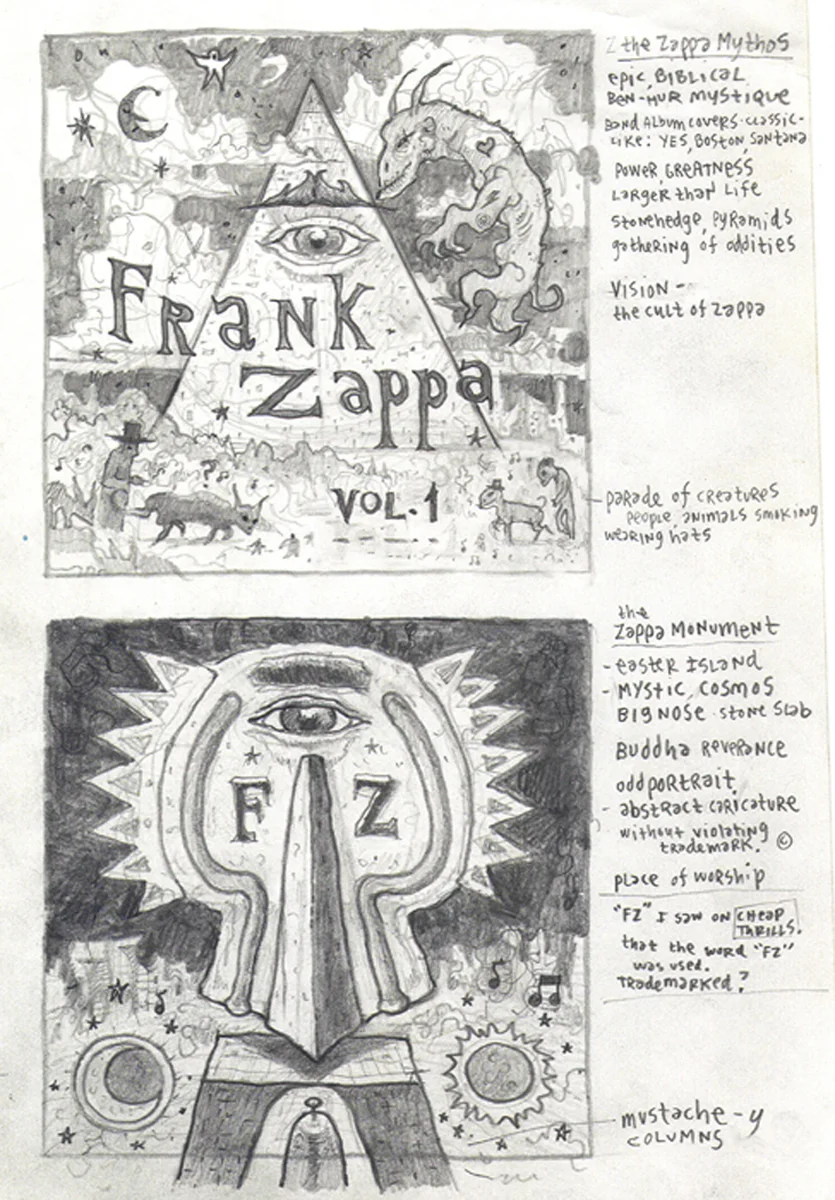 the Zappa Mythos
epic, BIBLICAL
BEN-HUR MYSTIQUE
BAND ALBUM COVERS-CLASSIC-
-LIKE: YES, BOSTON, SANTANA
POWER, GREATNESS
LARGER than Life
Stonehedge, PYRAMIDS
gathering of oddities
VISION -
the cult of Zappa
Frank
Zappa
VOL. 1
PARADE of CREATURES
people, animals smoking
wearing hats
the
Zappa MONUMENT
- EASTER ISLAND
- MYSTIC, COSMOS
BIG NOSE - STONE SLAB
Buddha REVERANCE
odd portrait,
- abstract caricature
without violating
trademark. ©
place of worship
"FZ" I saw on CHEAP
THRILLS.
that the word "FZ"
was used.
TRademarked?
F Z
mustache-y
COLUMNS